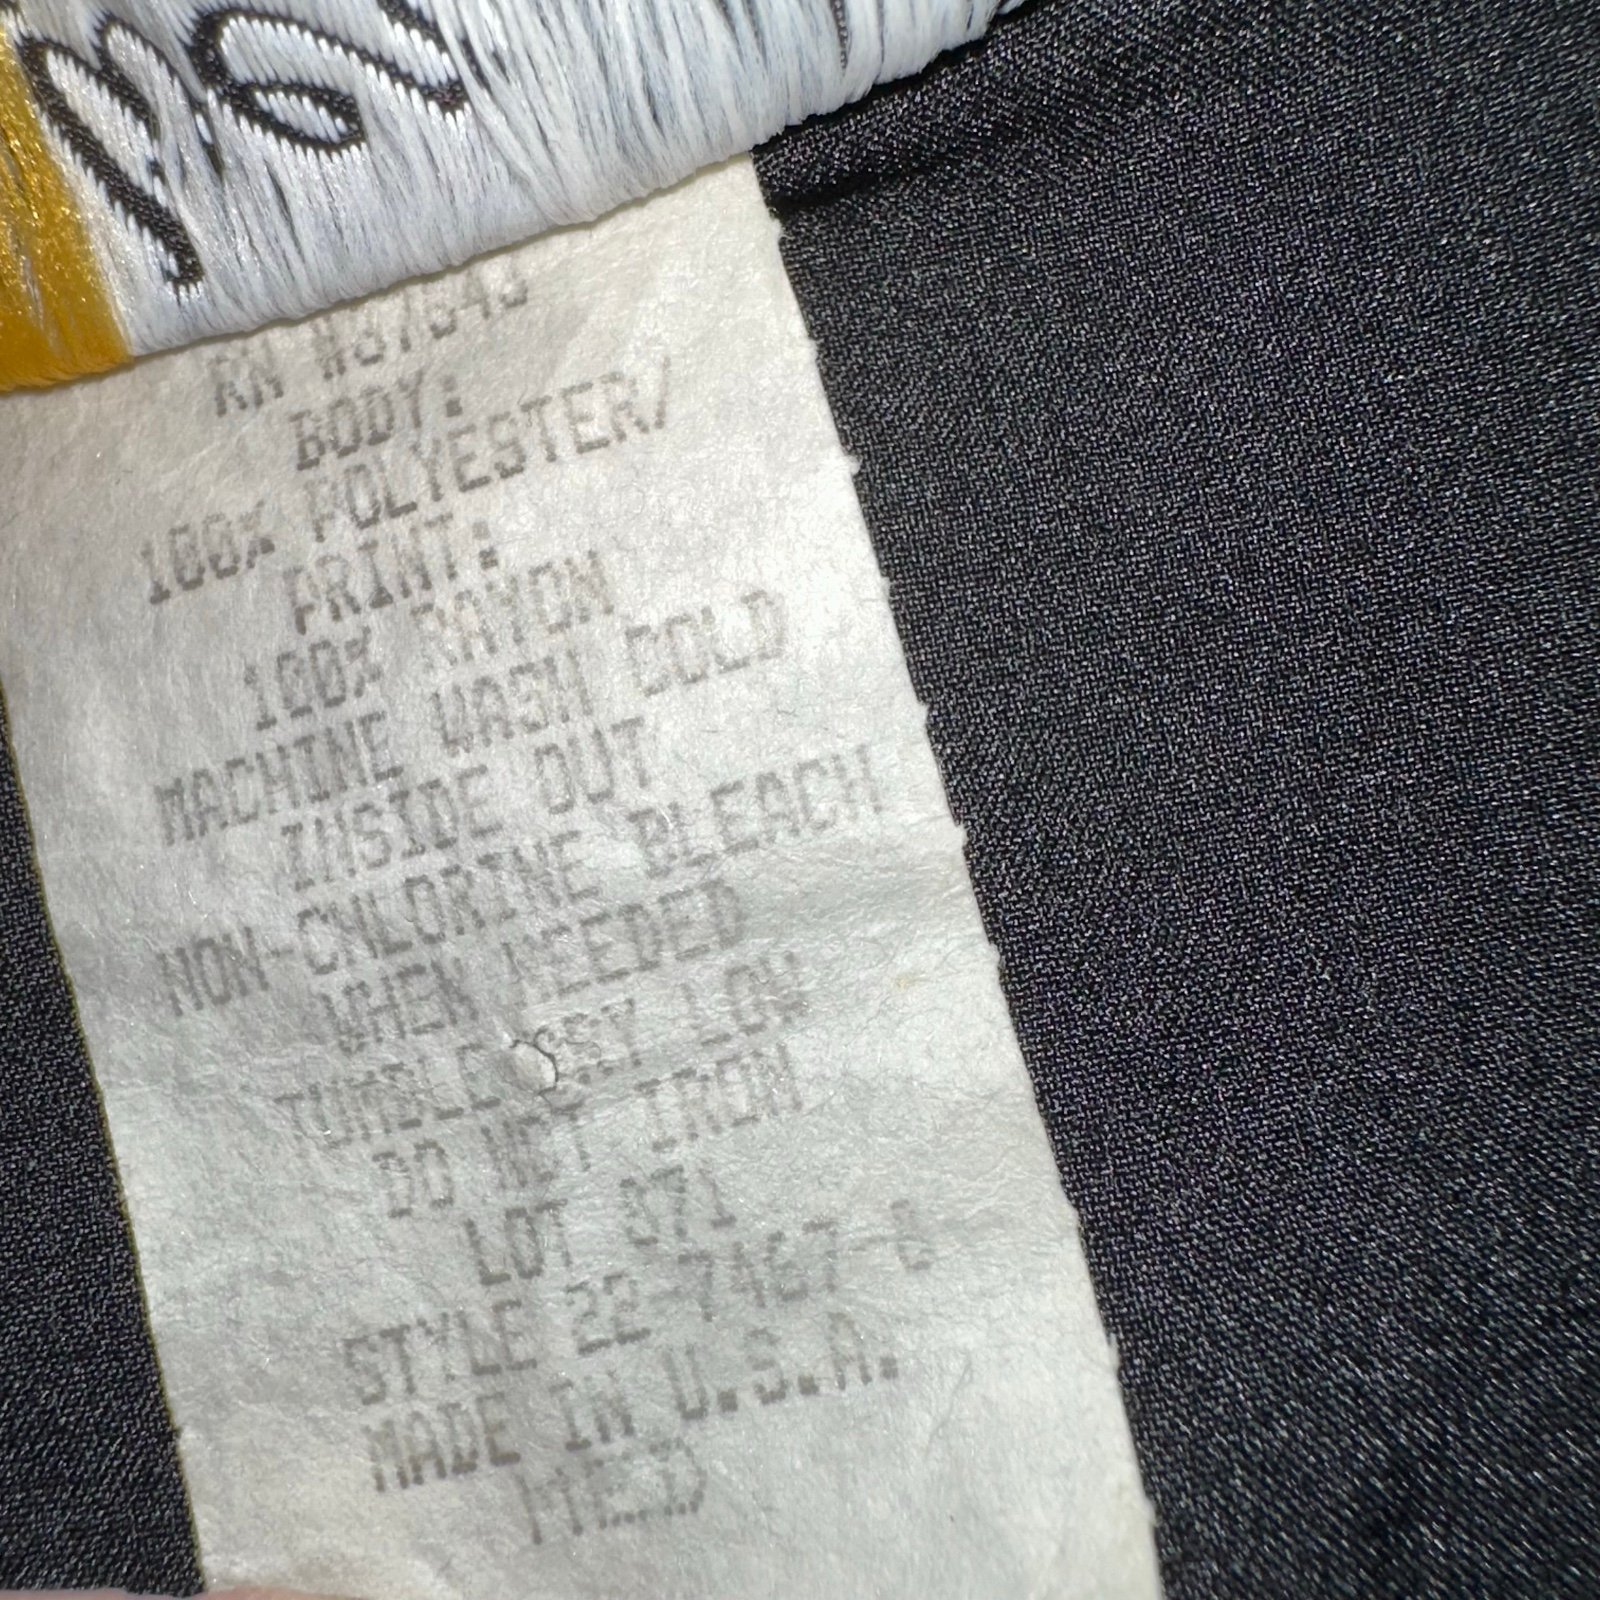 RN #37643
BODY:
100% POLYESTER/
PRINT:
100% RAYON
MACHINE WASH COLD
INSIDE OUT
NON-CHLORINE BLEACH
WHEN NEEDED
TUMBLE DRY LOW
DO NOT IRON
LOT 071
STYLE 22-7467-0
MADE IN U.S.A.
MED